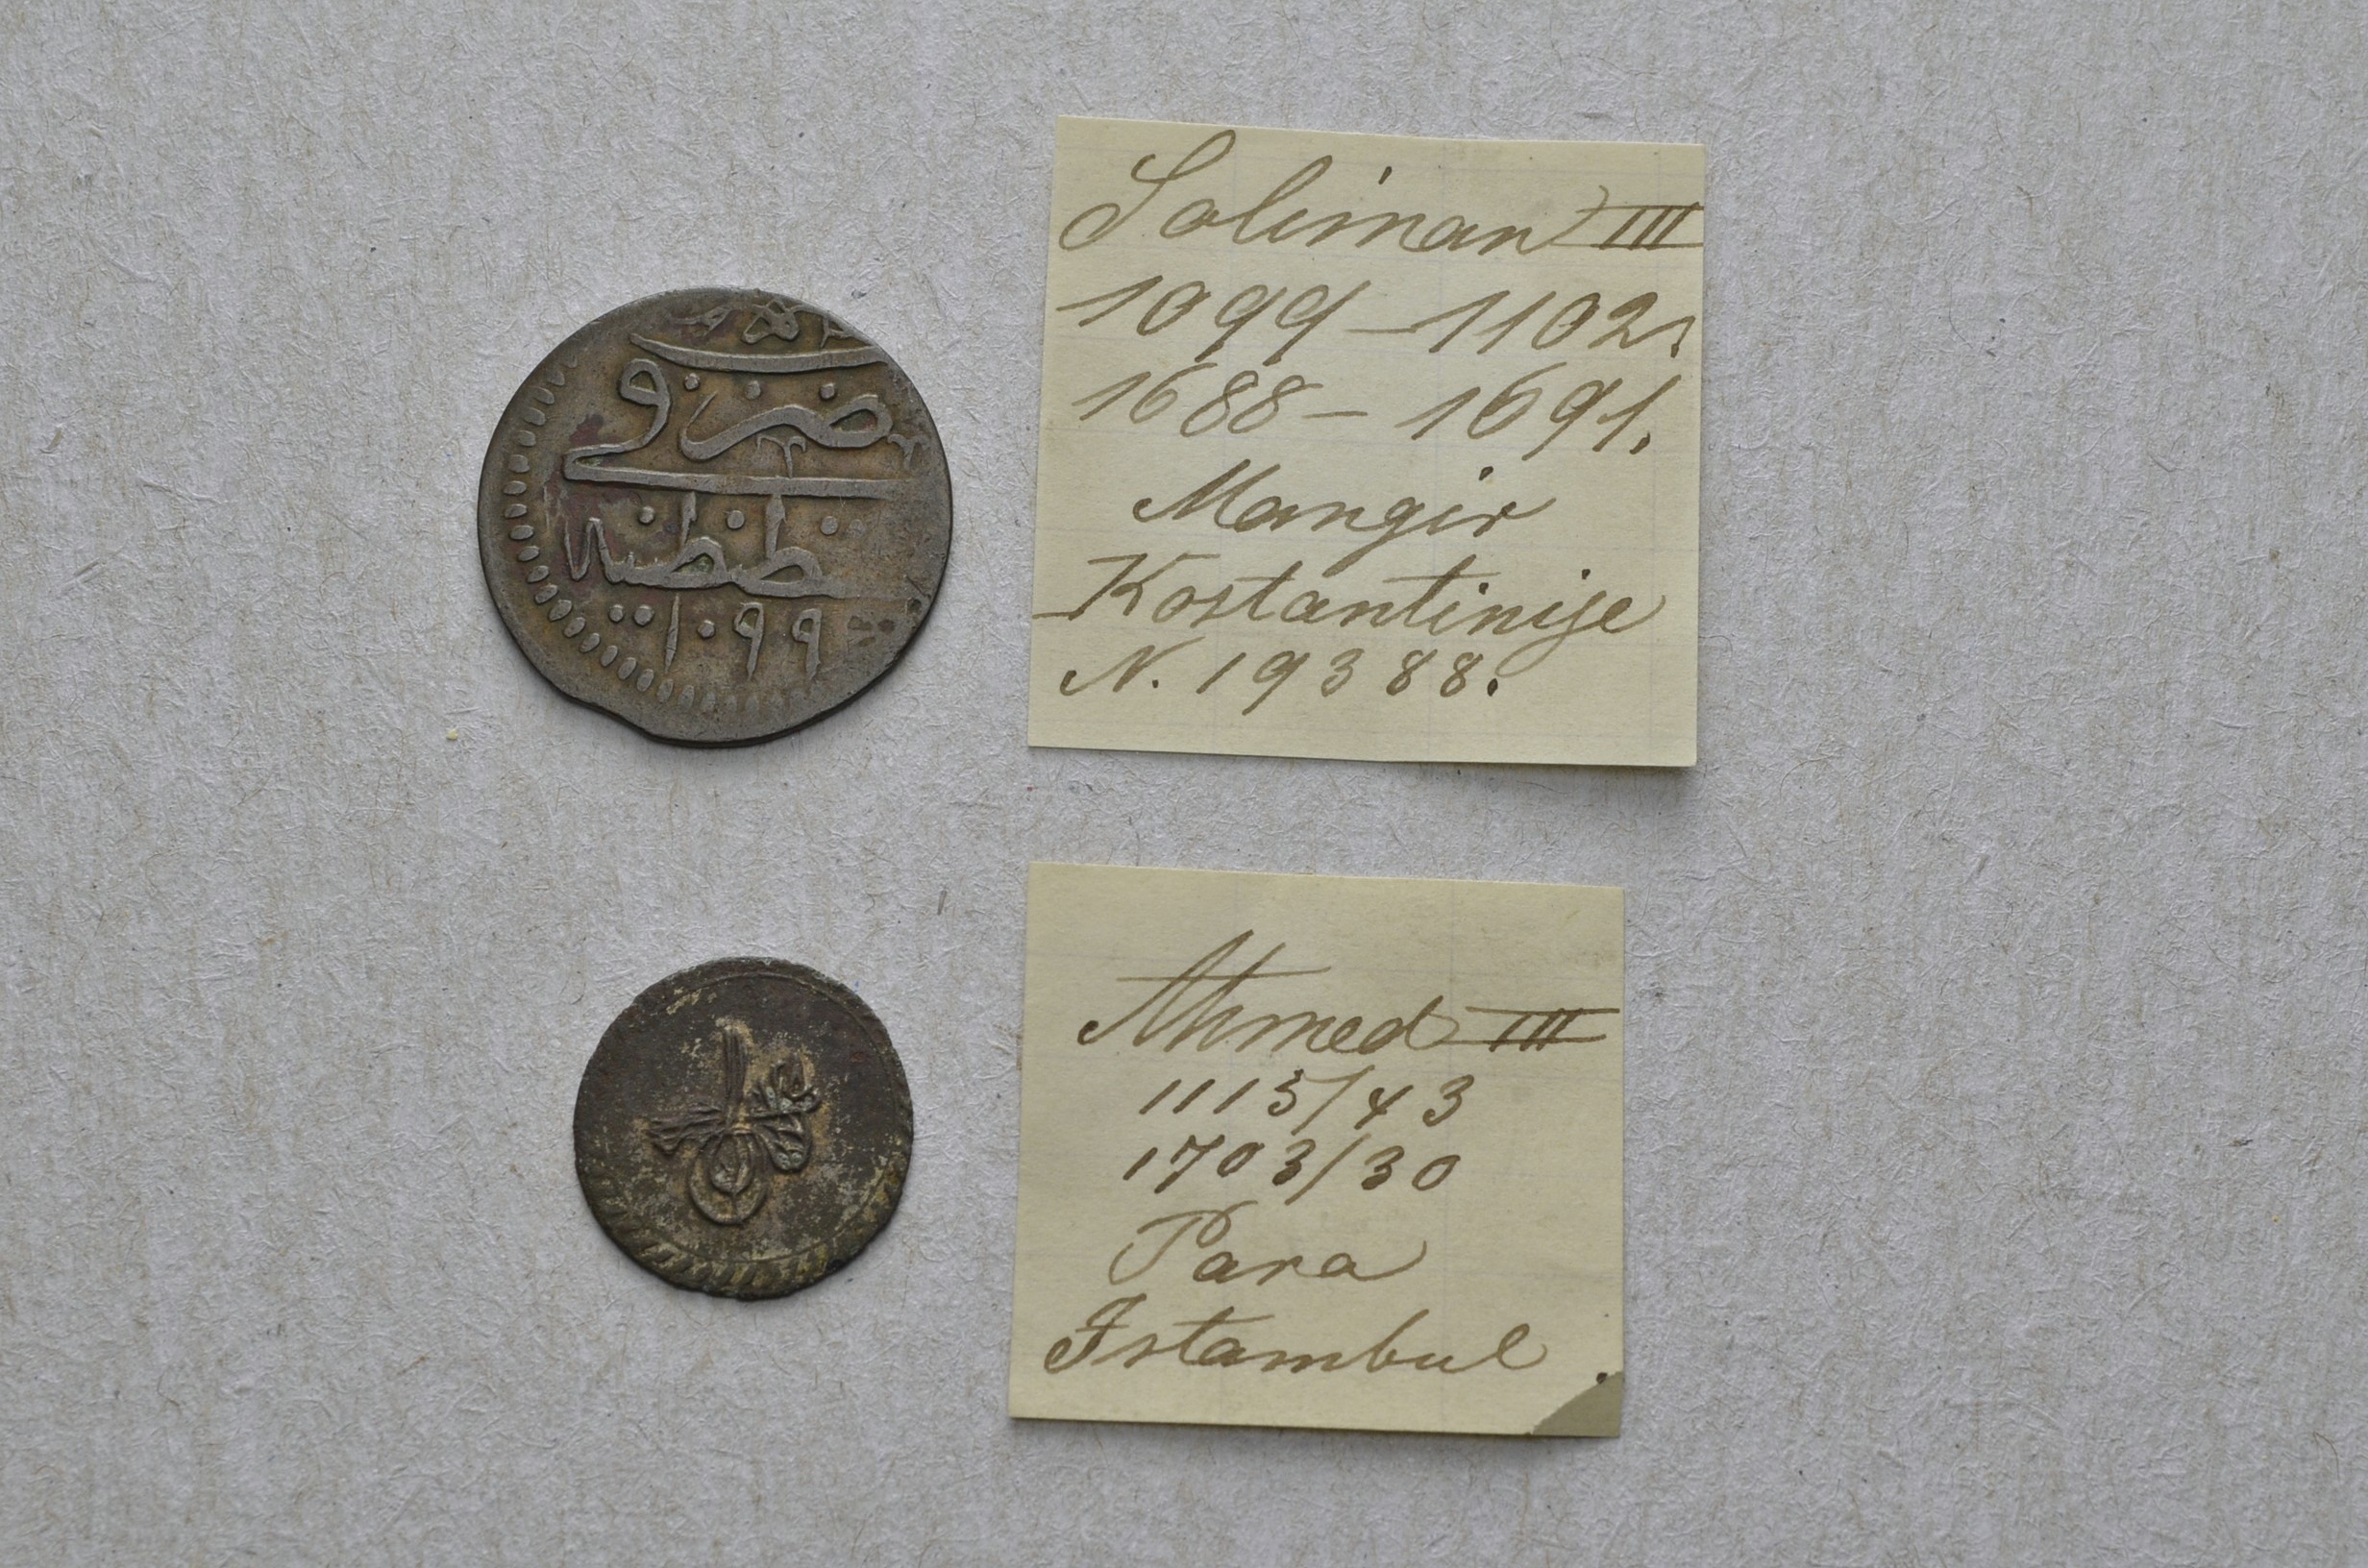 ضرب في
قسطنطينية
١٠٩٩
Soliman III
1099-1102.
1688-1691.
Mangir
Kostantinije
N. 19388.
Ahmed III
1115/43
1703/30
Para
Istambul.